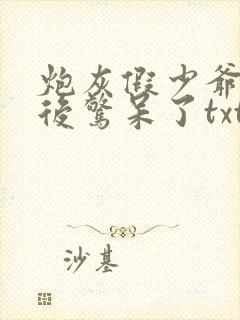 炮灰假少爷
後驚呆了txt
沙基